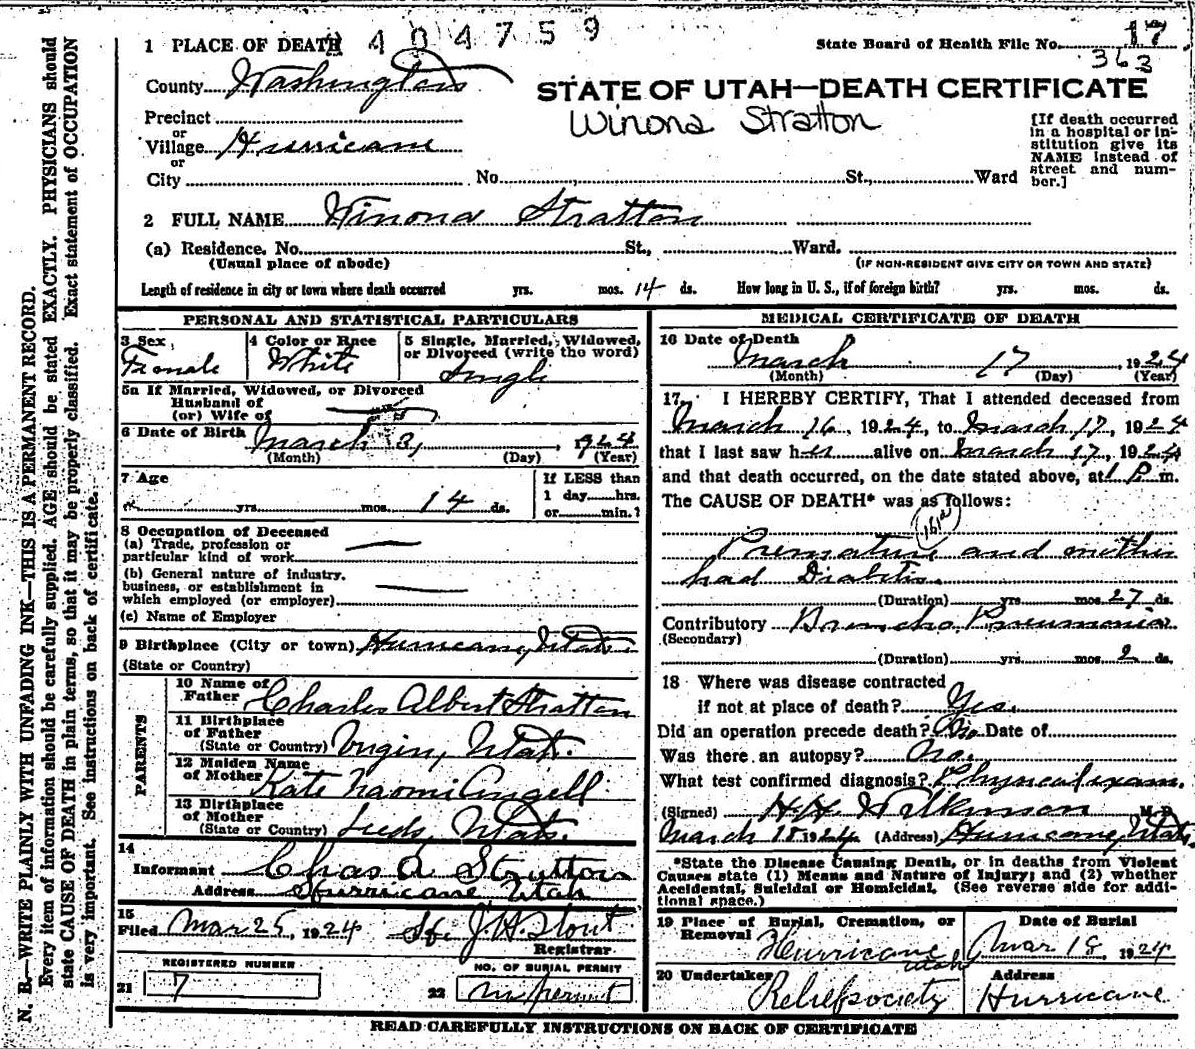 404759
1 PLACE OF DEATH
State Board of Health File No. 17
363
County Washington
STATE OF UTAH—DEATH CERTIFICATE
Winona Stratton
Precinct
or
Village Hurricane
or
City No. St., Ward
[If death occurred
in a hospital or in-
stitution give its
NAME instead of
street and num-
ber.]
2 FULL NAME Winona Stratton
(a) Residence. No. St., Ward.
(Usual place of abode) (IF NON-RESIDENT GIVE CITY OR TOWN AND STATE)
Length of residence in city or town where death occurred yrs. mos. 14 ds. How long in U. S., if of foreign birth? yrs. mos. ds.
PERSONAL AND STATISTICAL PARTICULARS
3 Sex
Female
4 Color or Race
White
5 Single, Married, Widowed,
or Divorced (write the word)
Single
5a If Married, Widowed, or Divorced
Husband of
(or) Wife of
6 Date of Birth March 3, 1924
(Month) (Day) (Year)
7 Age
yrs. mos. 14 ds.
If LESS than
1 day hrs.
or min.?
8 Occupation of Deceased
(a) Trade, profession or
particular kind of work
(b) General nature of industry,
business, or establishment in
which employed (or employer)
(c) Name of Employer
9 Birthplace (City or town) Hurricane, Utah
(State or Country)
PARENTS
10 Name of
Father Charles Albert Stratton
11 Birthplace
of Father
(State or Country) Virgin, Utah.
12 Maiden Name
of Mother Kate Naomi Angell
13 Birthplace
of Mother
(State or Country) Leeds, Utah.
14
Informant Chas A. Stratton
Address Hurricane Utah
15
Filed Mar 25, 1924 J. H. Stout
Registrar
REGISTERED NUMBER
21 7
NO. OF BURIAL PERMIT
22 no permit
MEDICAL CERTIFICATE OF DEATH
16 Date of Death
March 17, 1924
(Month) (Day) (Year)
17. I HEREBY CERTIFY, That I attended deceased from
March 16, 1924, to March 17, 1924
that I last saw her alive on March 17, 1924
and that death occurred, on the date stated above, at 1 P. m.
The CAUSE OF DEATH* was as follows:
Premature and mother
had Diabetis.
(Duration) yrs. mos. 27 ds.
Contributory Broncho Pneumonia
(Secondary)
(Duration) yrs. mos. 2 ds.
18 Where was disease contracted
if not at place of death? Yes.
Did an operation precede death? No. Date of
Was there an autopsy? No.
What test confirmed diagnosis? Physical exam.
(Signed) H. H. Wilkinson M.D.
March 18 1924 (Address) Hurricane, Utah.
*State the Disease Causing Death, or in deaths from Violent
Causes state (1) Means and Nature of Injury; and (2) whether
Accidental, Suicidal or Homicidal. (See reverse side for addi-
tional space.)
19 Place of Burial, Cremation, or
Removal
Hurricane
Utah
Date of Burial
Mar 18, 1924
20 Undertaker
Relief society
Address
Hurricane
READ CAREFULLY INSTRUCTIONS ON BACK OF CERTIFICATE
N. B.—WRITE PLAINLY WITH UNFADING INK—THIS IS A PERMANENT RECORD.
Every item of information should be carefully supplied. AGE should be stated EXACTLY. PHYSICIANS should
state CAUSE OF DEATH in plain terms, so that it may be properly classified. Exact statement of OCCUPATION
is very important. See instructions on back of certificate.